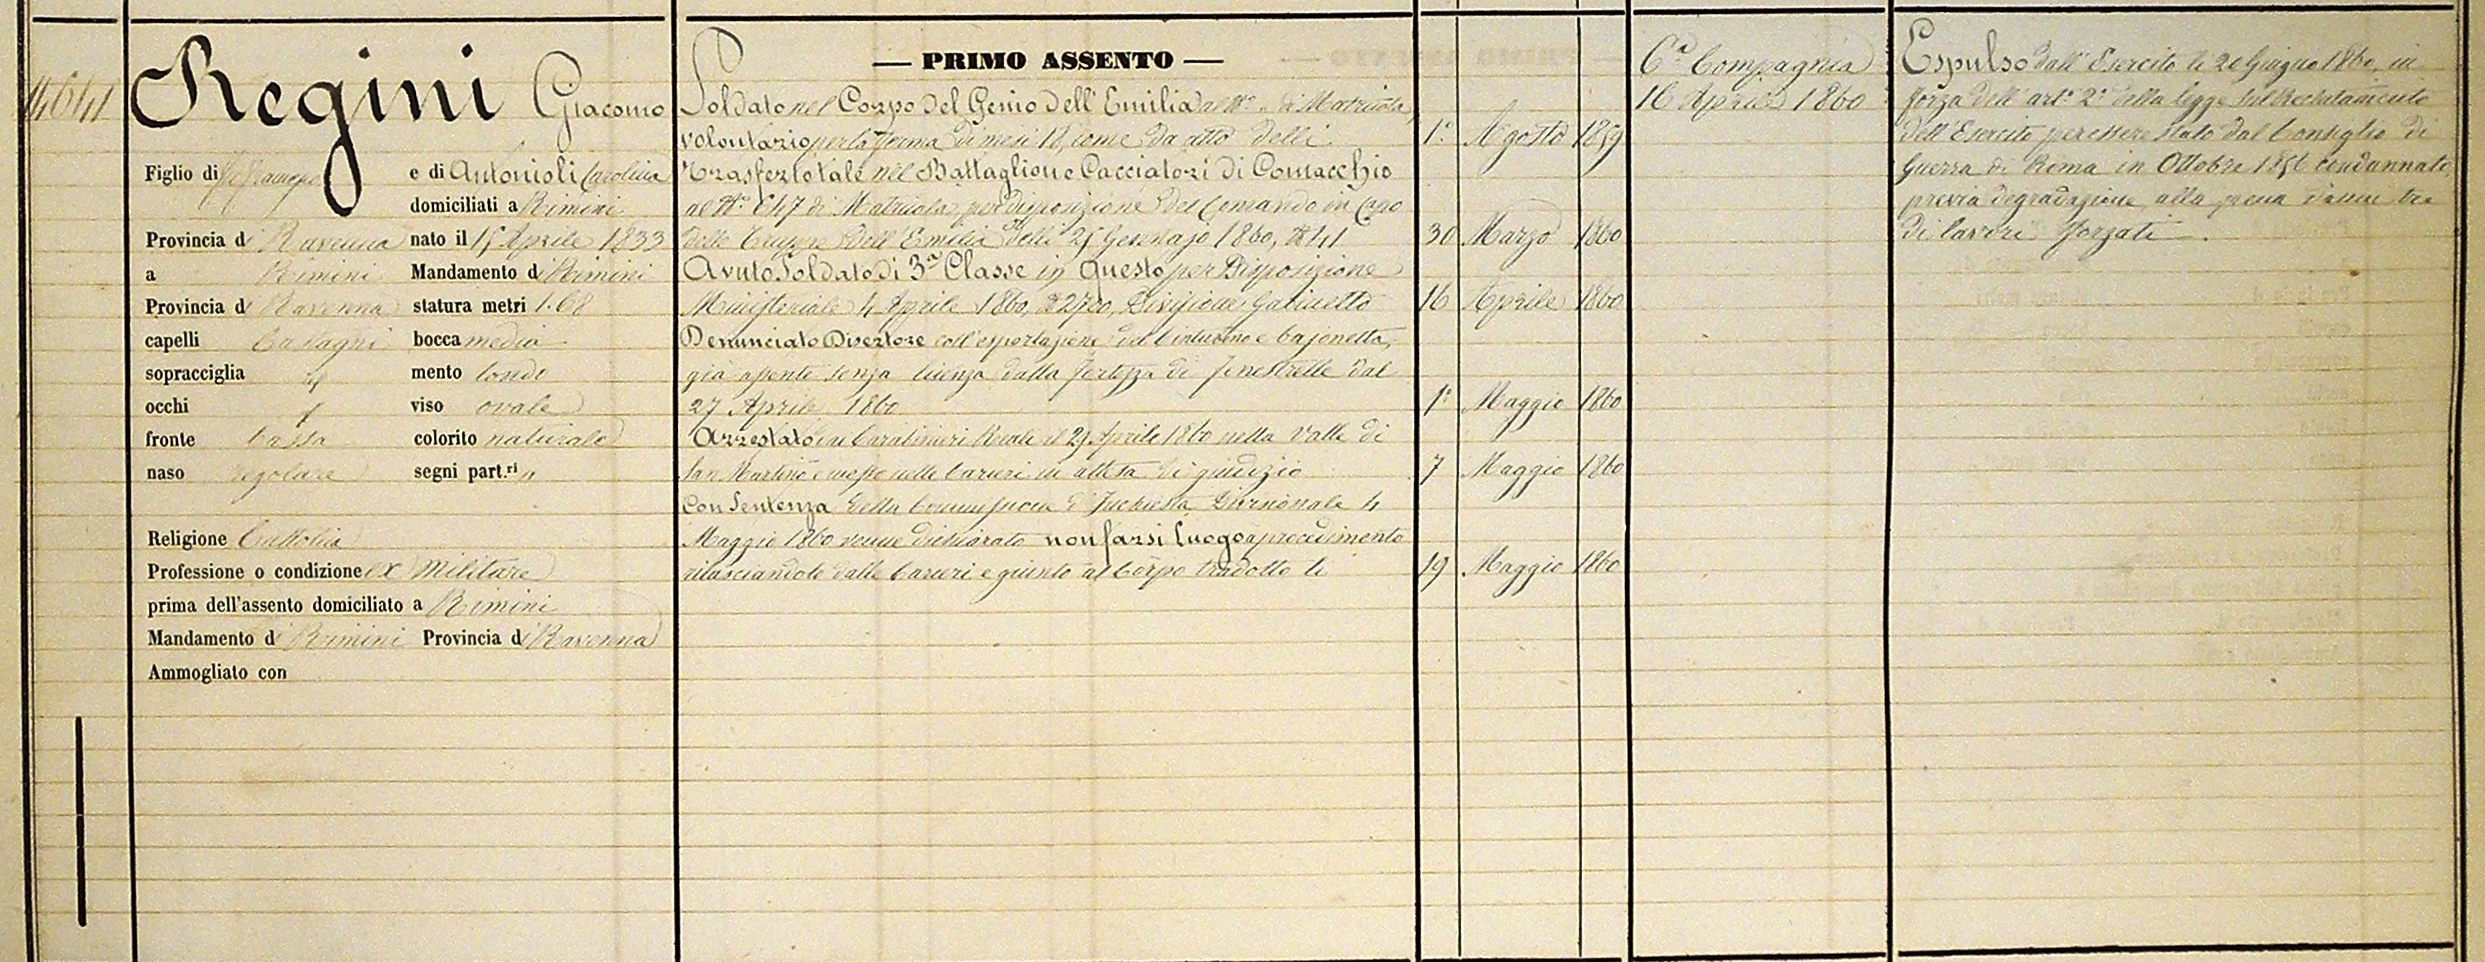 14641
Regini Giacomo
Figlio di fu Francesco e di Antonioli Carolina
domiciliati a Rimini
Provincia di Ravenna nato il 15 Aprile 1833
a Rimini Mandamento di Rimini
Provincia di Ravenna statura metri 1.68
capelli Castagni bocca media
sopracciglia id mento tondo
occhi viso ovale
fronte bassa colorito naturale
naso regolare segni part.ri "
Religione Cattolica
Professione o condizione ex Militare
prima dell'assento domiciliato a Rimini
Mandamento di Rimini Provincia di Ravenna
Ammogliato con
— PRIMO ASSENTO —
Soldato nel Corpo del Genio dell'Emilia al N° " di Matricola,
volontario per la ferma di mesi 18, come da atto delli 1° Agosto 1859
Trasferto tale nel Battaglione Cacciatori di Comacchio
al N° 647 di Matricola per disposizione del Comando in Capo
delle Truppe dell'Emilia delli 25 Gennajo 1860, N 41 30 Marzo 1860
Avuto Soldato di 3a Classe in questo per Disposizione
Ministeriale 4 Aprile 1860, N 2720, Divisione Gabinetto 16 Aprile 1860
Denunciato Disertore coll'esportazione del cinturino e bajonetta,
già assente senza licenza dalla fortezza di Fenestrelle dal
27 Aprile 1860 1° Maggio 1860
Arrestato dai Carabinieri Reali il 29 Aprile 1860 nella Valle di
San Martino e messo nelle Carceri in attesa di giudizio 7 Maggio 1860
Con Sentenza della Commissione d'Inchiesta Divisionale 4
Maggio 1860 venne dichiarato non farsi luogo a procedimento
rilasciandolo dalle Carceri e giunto al Corpo tradotto li 19 Maggio 1860
6a Compagnia
16 Aprile 1860
Espulso dall'Esercito li 20 Giugno 1860, in
forza dell'art° 2° della legge sul Reclutamento
dell'Esercito per essere stato dal Consiglio di
Guerra di Roma in Ottobre 1856 condannato,
previa degradazione, alla pena d'anni tre
di lavori forzati.